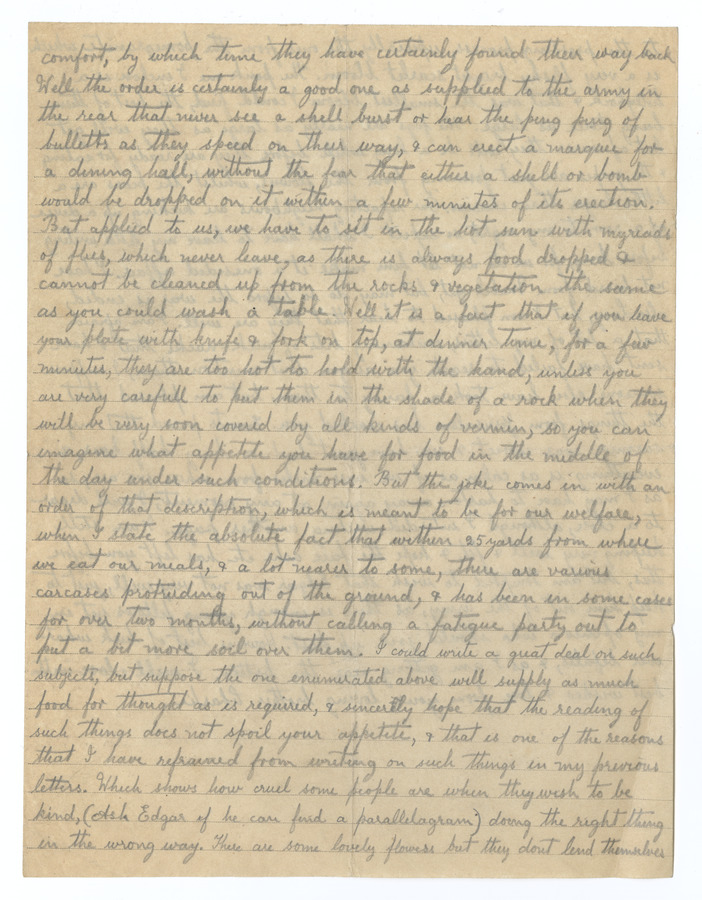 comfort, by which time they have certainly found their way back
Well the order is certainly a good one as supplied to the army in
the rear that never see a shell burst or hear the ping ping of
bulletts as they speed on their way, & can erect a marquee for
a dining hall, without the fear that either a shell or bomb
would be dropped on it within a few minutes of its erection.
But applied to us, we have to sit in the hot sun with myreads
of flies, which never leave, as there is always food dropped &
cannot be cleaned up from the rocks & vegetation the same
as you could wash a table. Well it is a fact that if you leave
your plate with knife & fork on top, at dinner time, for a few
minutes, they are too hot to hold with the hand, unless you
are very carefull to put them in the shade of a rock when they
will be very soon covered by all kinds of vermin, so you can
imagine what appetite you have for food in the middle of
the day under such conditions. But the joke comes in with an
order of that description, which is meant to be for our welfare,
when I state the absolute fact that within 25 yards from where
we eat our meals, & a lot nearer to some, there are various
carcases protruding out of the ground, & has been in some cases
for over two months, without calling a fatigue party out to
put a bit more soil over them. I could write a great deal on such
subjects, but suppose the one enumerated above will supply as much
food for thought as is required, & sincerely hope that the reading of
such things does not spoil your appetite, & that is one of the reasons
that I have refrained from writing on such things in my previous
letters. Which shows how cruel some people are when they wish to be
kind, (Ask Edgar if he can find a parallelagram) doing the right thing
in the wrong way. There are some lovely flowers but they dont lend themselves